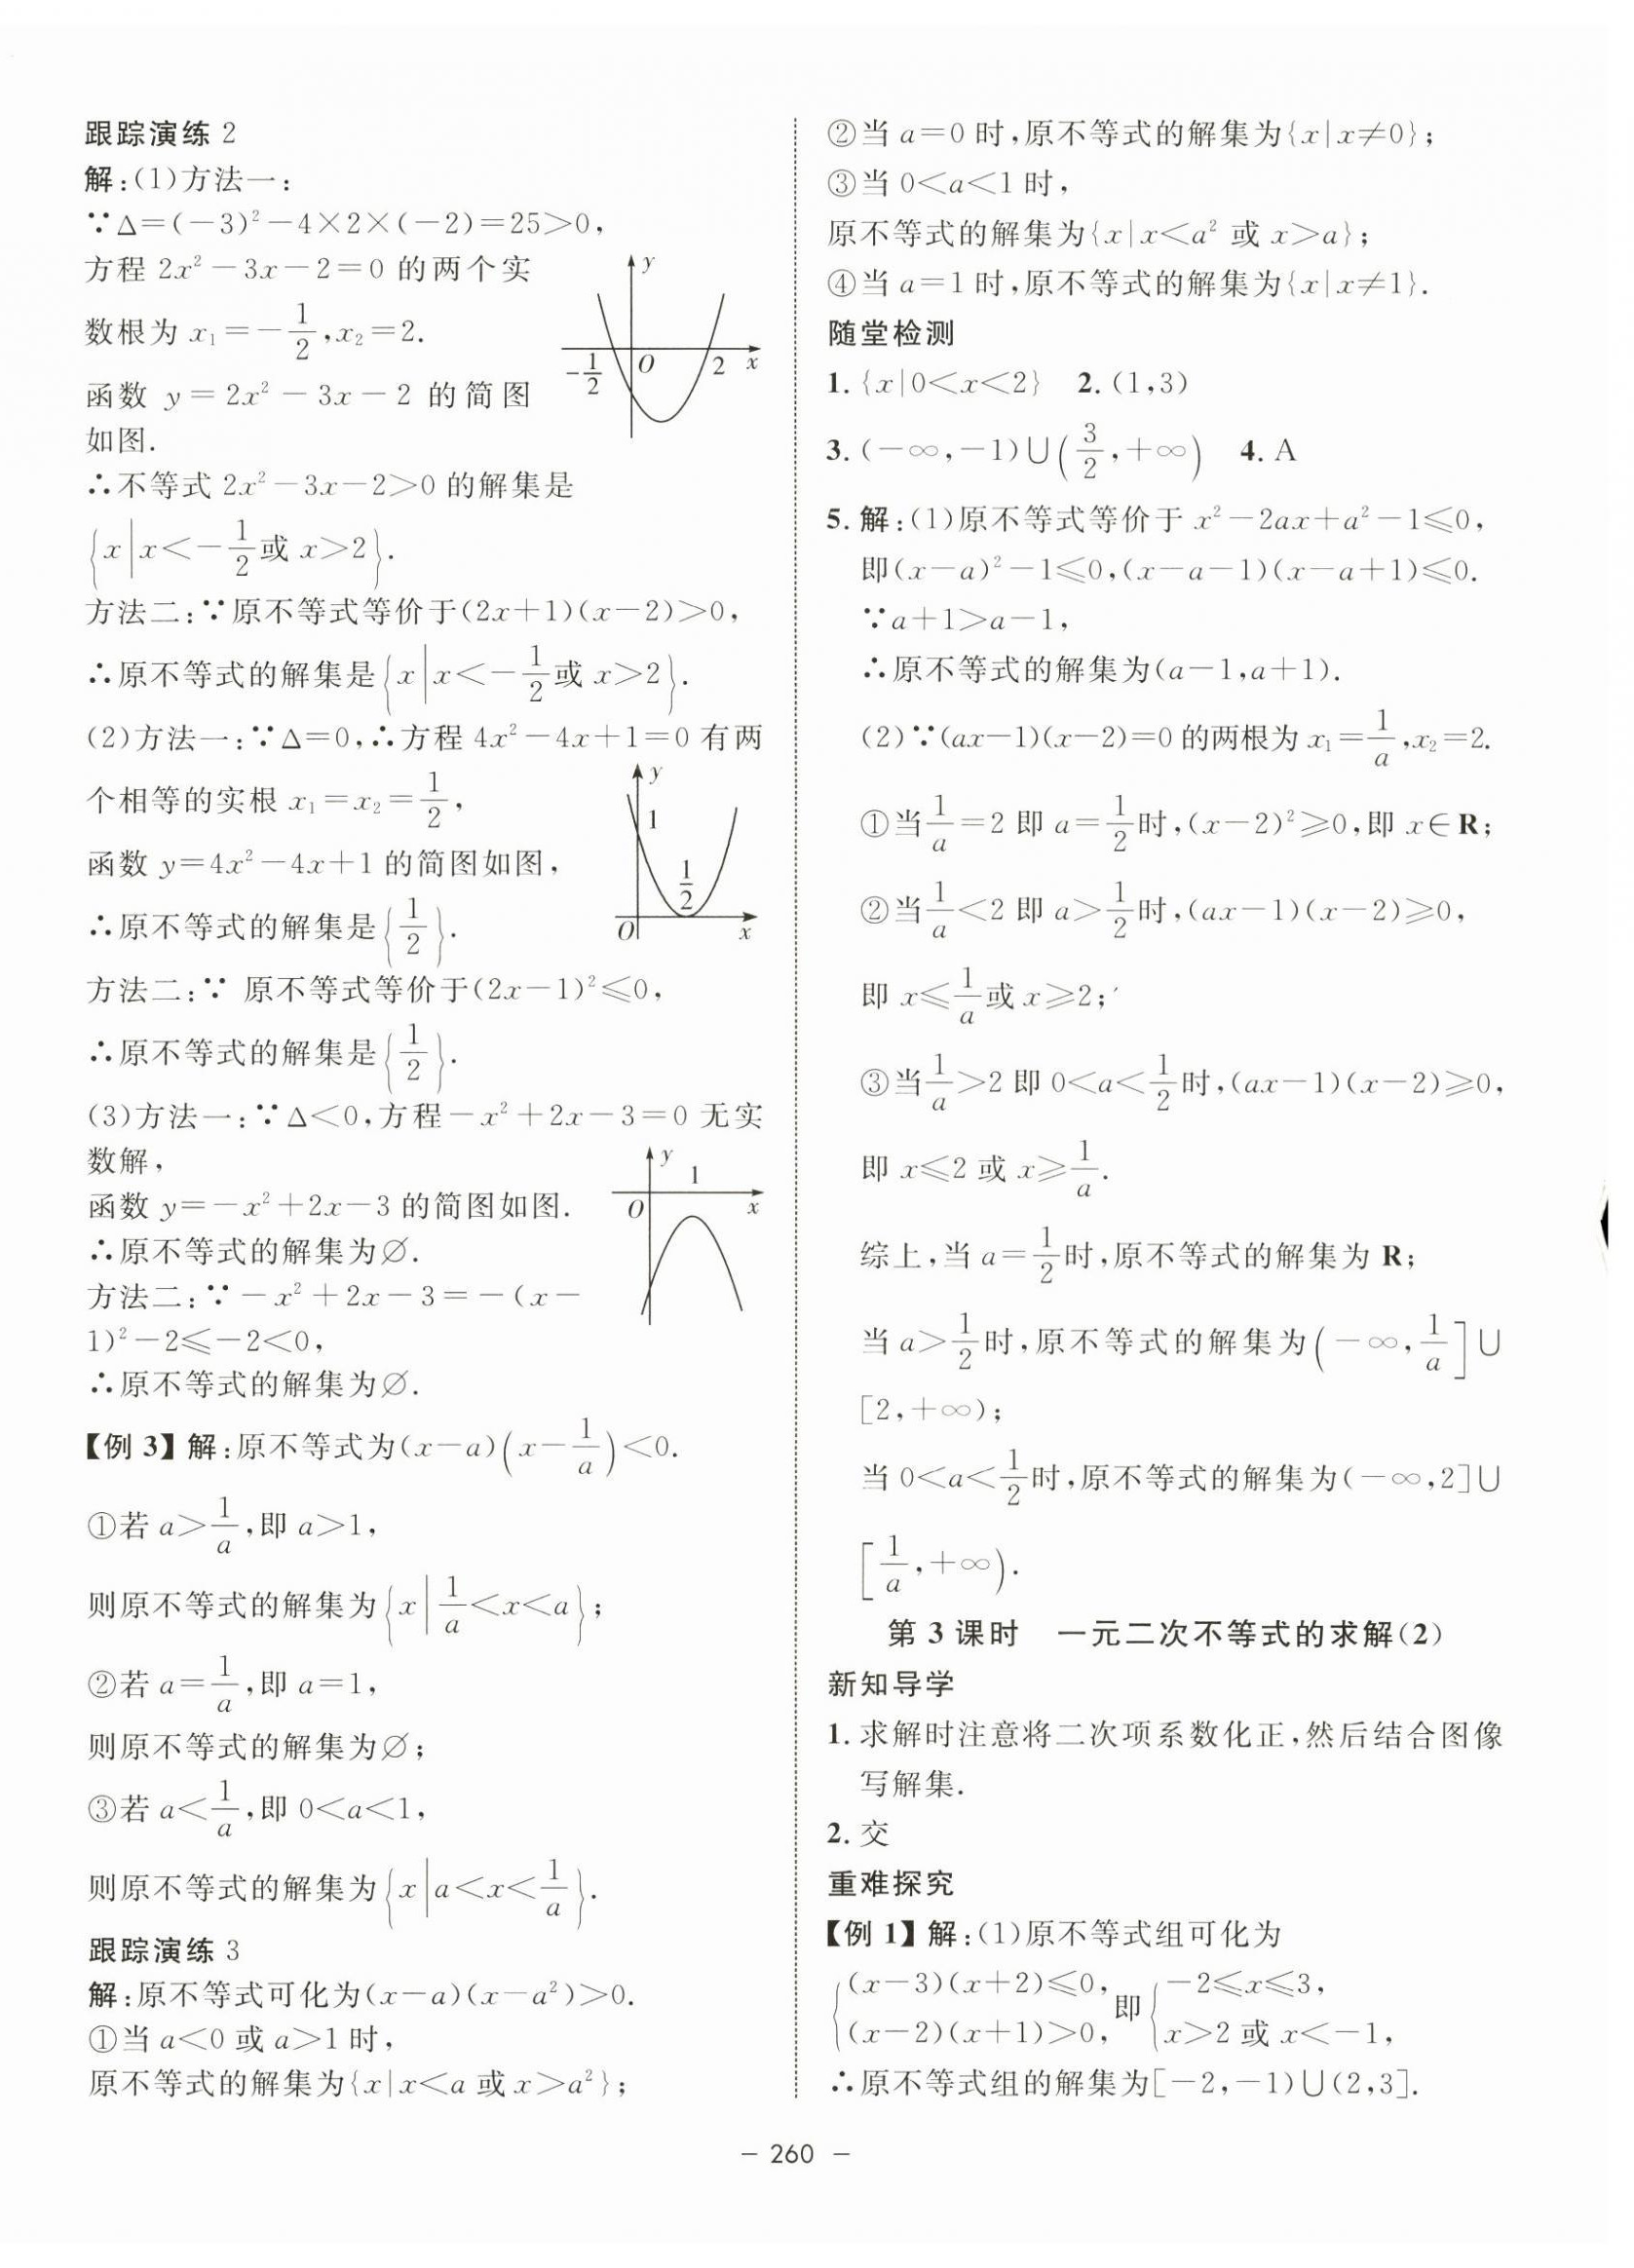 跟踪演练 2
解:(1)方法一:
∵Δ=(-3)²-4×2×(-2)=25>0,
方程 2x²-3x-2=0 的两个实
数根为 x₁=-1/2,x₂=2.
函数 y=2x²-3x-2 的简图
如图.
y
-1/2 O 2 x
∴不等式 2x²-3x-2>0 的解集是
{x|x<-1/2或 x>2}.
方法二:∵原不等式等价于(2x+1)(x-2)>0,
∴原不等式的解集是{x|x<-1/2或 x>2}.
(2)方法一:∵Δ=0,∴方程 4x²-4x+1=0 有两
个相等的实根 x₁=x₂=1/2,
函数 y=4x²-4x+1 的简图如图,
y
1
1/2
O x
∴原不等式的解集是{1/2}.
方法二:∵ 原不等式等价于(2x-1)²≤0,
∴原不等式的解集是{1/2}.
(3)方法一:∵Δ<0,方程-x²+2x-3=0 无实
数解,
函数 y=-x²+2x-3 的简图如图.
y
1
O x
∴原不等式的解集为∅.
方法二:∵-x²+2x-3=-(x-
1)²-2≤-2<0,
∴原不等式的解集为∅.
【例 3】解:原不等式为(x-a)(x-1/a)<0.
①若 a>1/a,即 a>1,
则原不等式的解集为{x|1/a<x<a};
②若 a=1/a,即 a=1,
则原不等式的解集为∅;
③若 a<1/a,即 0<a<1,
则原不等式的解集为{x|a<x<1/a}.
跟踪演练 3
解:原不等式可化为(x-a)(x-a²)>0.
①当 a<0 或 a>1 时,
原不等式的解集为{x|x<a 或 x>a²};
②当 a=0 时,原不等式的解集为{x|x≠0};
③当 0<a<1 时,
原不等式的解集为{x|x<a² 或 x>a};
④当 a=1 时,原不等式的解集为{x|x≠1}.
随堂检测
1. {x|0<x<2} 2. (1,3)
3. (-∞,-1)∪(3/2,+∞) 4. A
5. 解:(1)原不等式等价于 x²-2ax+a²-1≤0,
即(x-a)²-1≤0,(x-a-1)(x-a+1)≤0.
∵a+1>a-1,
∴原不等式的解集为(a-1,a+1).
(2)∵(ax-1)(x-2)=0 的两根为 x₁=1/a,x₂=2.
①当1/a=2 即 a=1/2时,(x-2)²≥0,即 x∈R;
②当1/a<2 即 a>1/2时,(ax-1)(x-2)≥0,
即 x≤1/a或 x≥2;
③当1/a>2 即 0<a<1/2时,(ax-1)(x-2)≥0,
即 x≤2 或 x≥1/a.
综上,当 a=1/2时,原不等式的解集为 R;
当 a>1/2时,原不等式的解集为(-∞,1/a]∪
[2,+∞);
当 0<a<1/2时,原不等式的解集为(-∞,2]∪
[1/a,+∞).
第 3 课时 一元二次不等式的求解(2)
新知导学
1. 求解时注意将二次项系数化正,然后结合图像
写解集.
2. 交
重难探究
【例 1】解:(1)原不等式组可化为
{(x-3)(x+2)≤0, 即 {-2≤x≤3,
(x-2)(x+1)>0, x>2 或 x<-1,
∴原不等式组的解集为[-2,-1)∪(2,3].
- 260 -